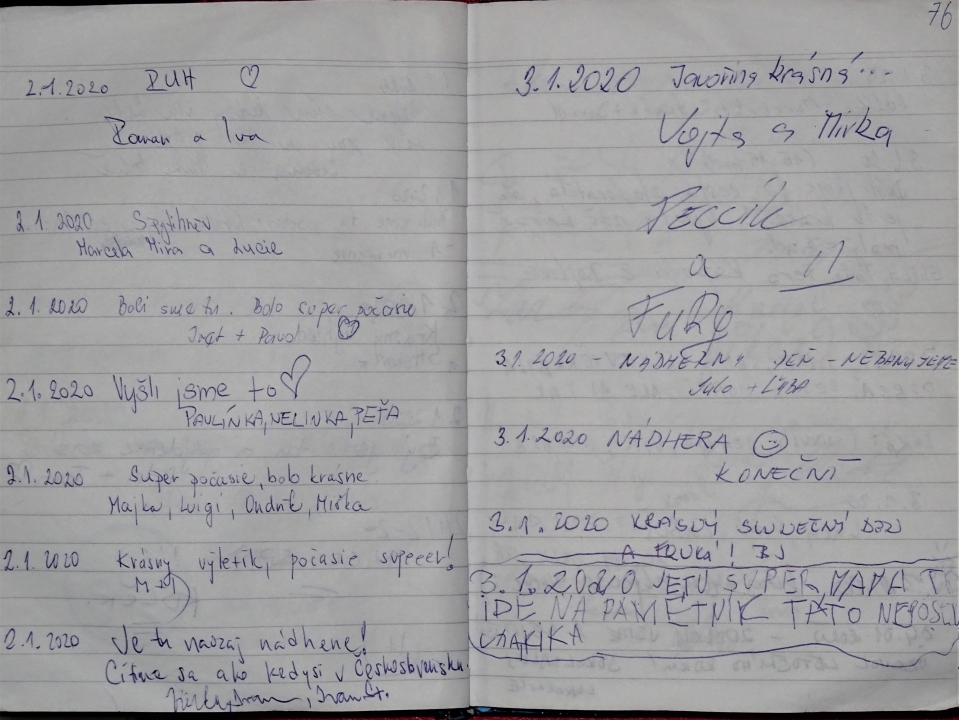 2.1.2020 RUH ♡
Roman a Iva
2.1.2020 Spytihněv
Marcela Mira a Lucie
2.1.2020 Boli sme tu. Bolo super počasie
+ Pavol
2.1.2020 Vyšli jsme to ♡
PAVLÍNKA, NELINKA, PEŤA
2.1.2020 Super počasie, bolo krásne
Majka, Luigi, Ondrik, Mirka
2.1.2020 Krásný výletik, počasie supeeer!
M+M
2.1.2020 Je tu naozaj nádherne!
Cítime sa ako kedysi v Československu.
76
3.1.2020 Javořina krásná...
Vojta a Mirka
PECCIK
a 11
FURY
3.1.2020 - NÁDHERNÝ DEŇ - NEBANUJEME
JULO + ĽUBA
3.1.2020 NÁDHERA ☺
KONEČNÍ
3.1.2020 KRÁSNÝ SLUNEČNÍ DEN
A FOUKÁ! BJ
3.1.2020 JETU SUPER, MAMA TI
IDE NA PAMETNIK TATO NEPOSLU
CHA KIKA